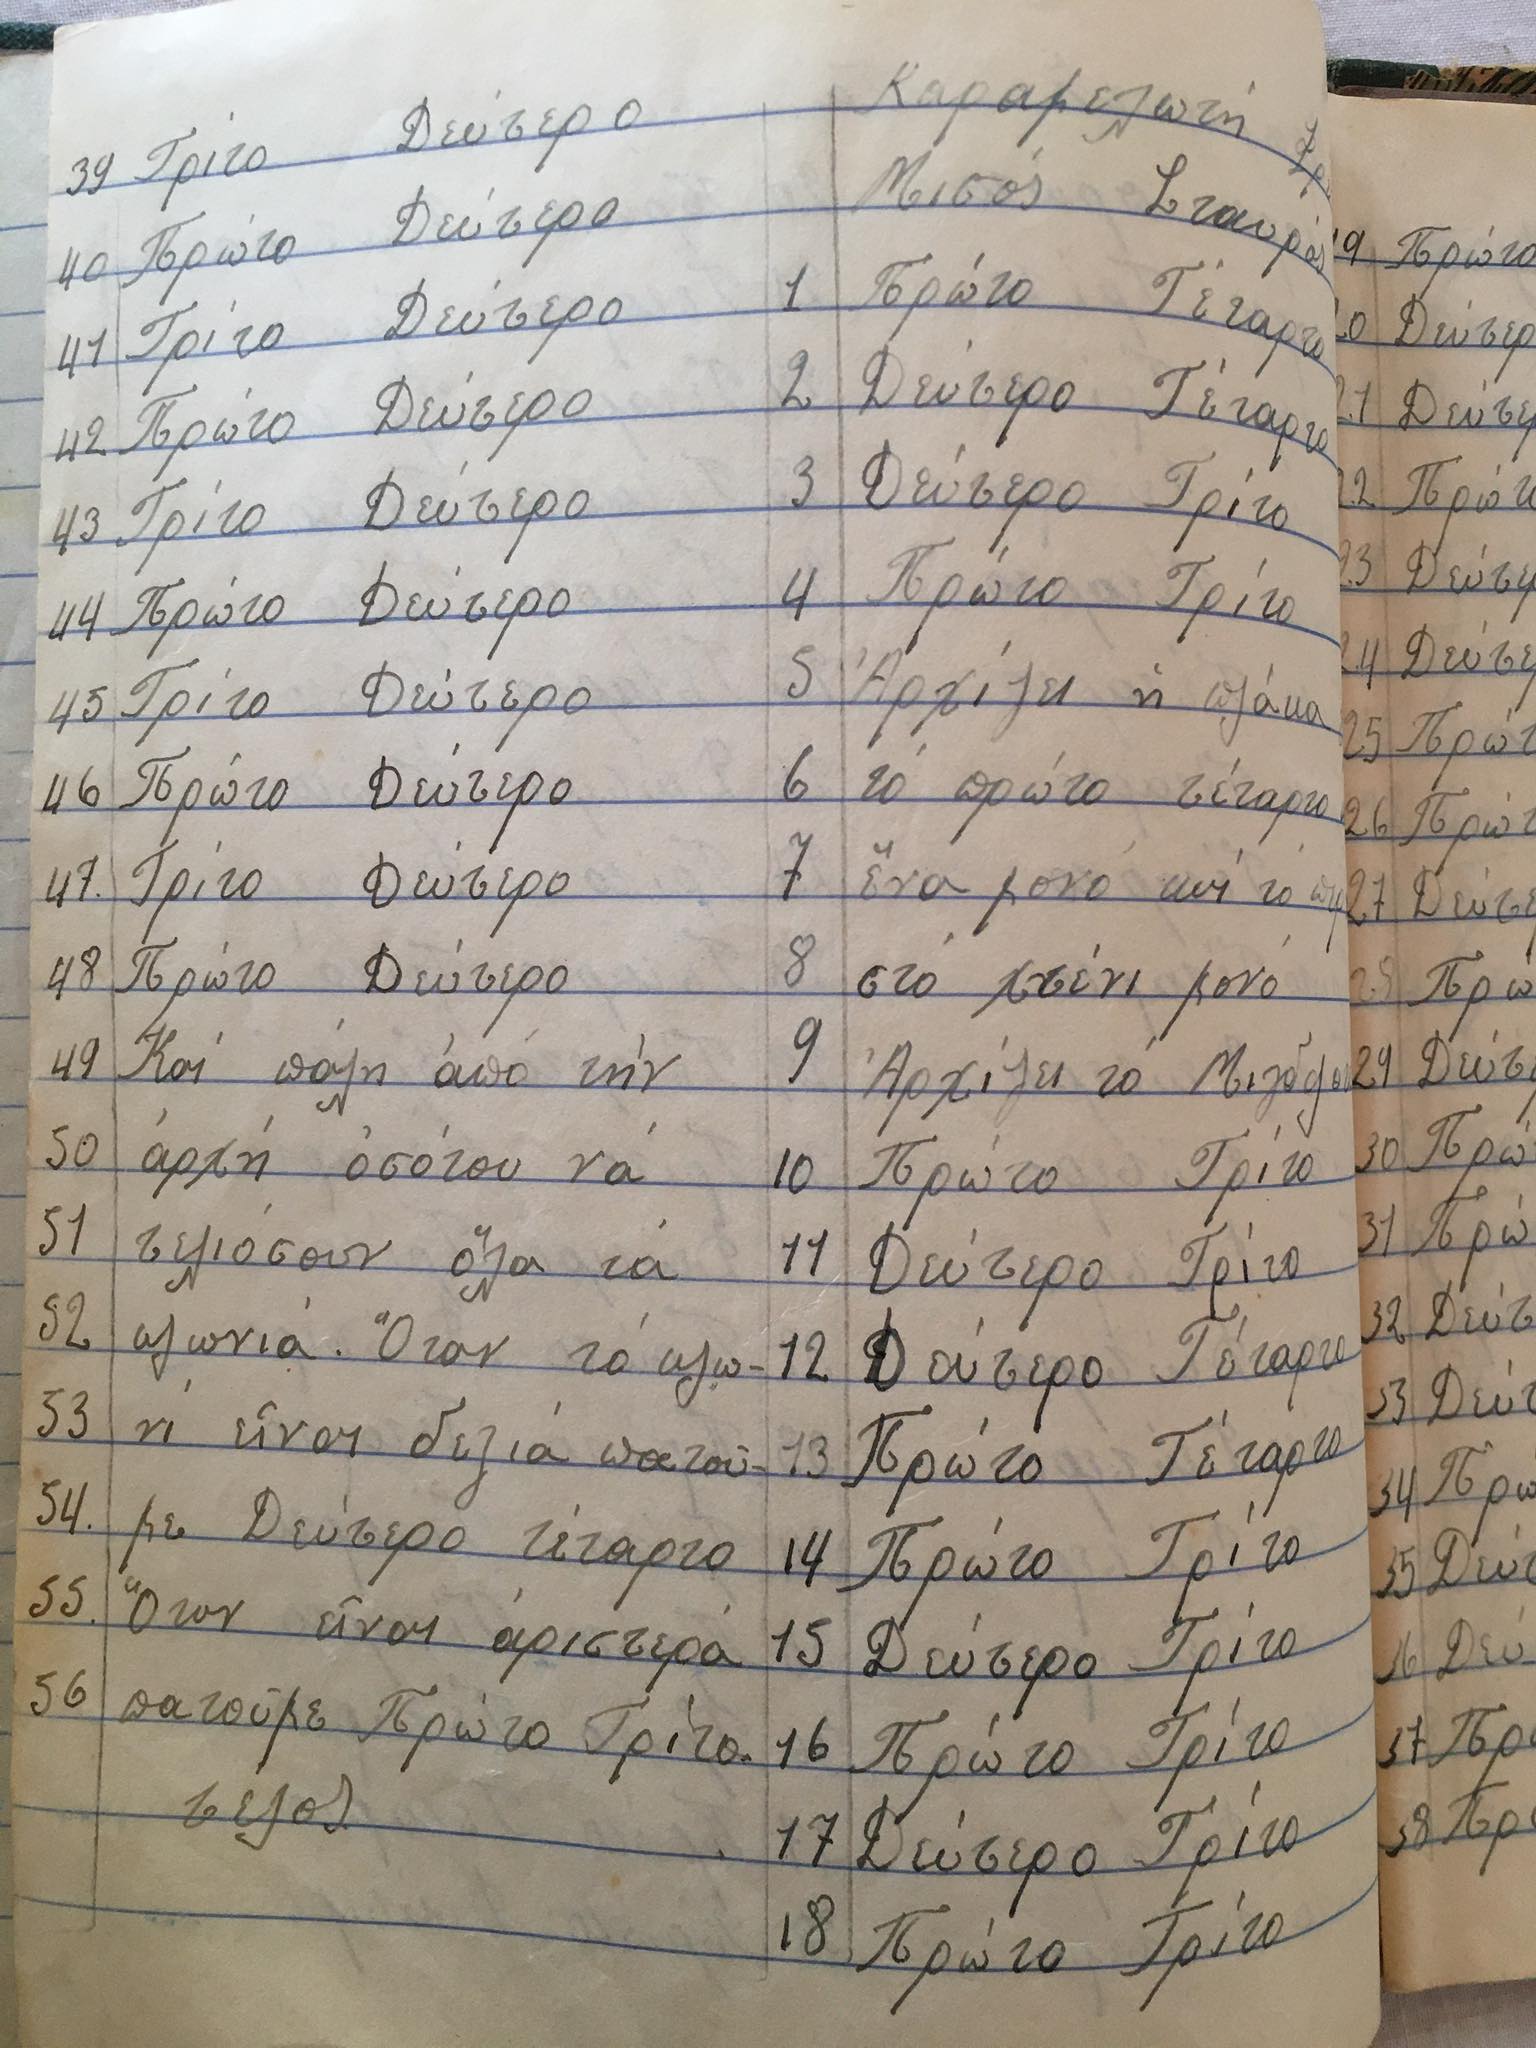 39 Τρίτο Δεύτερο
40 Πρώτο Δεύτερο
41 Τρίτο Δεύτερο
42 Πρώτο Δεύτερο
43 Τρίτο Δεύτερο
44 Πρώτο Δεύτερο
45 Τρίτο Δεύτερο
46 Πρώτο Δεύτερο
47. Τρίτο Δεύτερο
48 Πρώτο Δεύτερο
49 Καί πάλη ἀπό τήν
50 ἀρχή ὁσότου νά
51 τελιόσουν ὅλα τά
52 κλωνιά. Ὅταν τό κλω-
53 νί εἶναι δεξιά πατοῦ-
54. με Δεύτερο τέταρτο
55. Ὅταν εἶναι ἀριστερά
56 πατοῦμε Πρώτο Τρίτο.
τελος
Καραμελωτή
Μισός Σταυρός
1 Πρώτο Τέταρτο
2 Δεύτερο Τέταρτο
3 Δεύτερο Τρίτο
4 Πρώτο Τρίτο
5 Ἀρχίζει ἡ πλάκα
6 τό πρώτο τέταρτο
7 ἕνα μονό καί τό
8 στό χτένι μονό
9 Ἀρχίζει τό
10 Πρώτο Τρίτο
11 Δεύτερο Τρίτο
12 Δεύτερο Τέταρτο
13 Πρώτο Τέταρτο
14 Πρώτο Τρίτο
15 Δεύτερο Τρίτο
16 Πρώτο Τρίτο
17 Δεύτερο Τρίτο
18 Πρώτο Τρίτο
19 Πρώτο
20 Δεύτερ
21 Δεύτερ
22 Πρώτ
23 Δεύτε
24 Δεύτε
25 Πρώτ
26 Πρώτ
27 Δεύτε
28 Πρώ
29 Δεύτ
30 Πρώ
31 Πρώ
32 Δεύτ
33 Δεύτ
34 Πρώ
35 Δεύτ
36 Δεύ
37 Πρώ
38 Πρώ